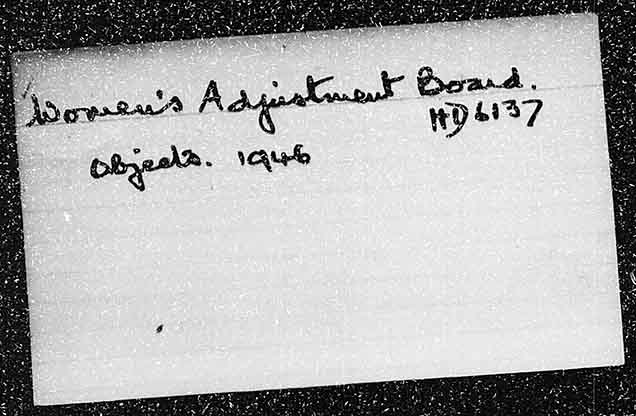 Women's Adjustment Board.
HD6137
Objects. 1946